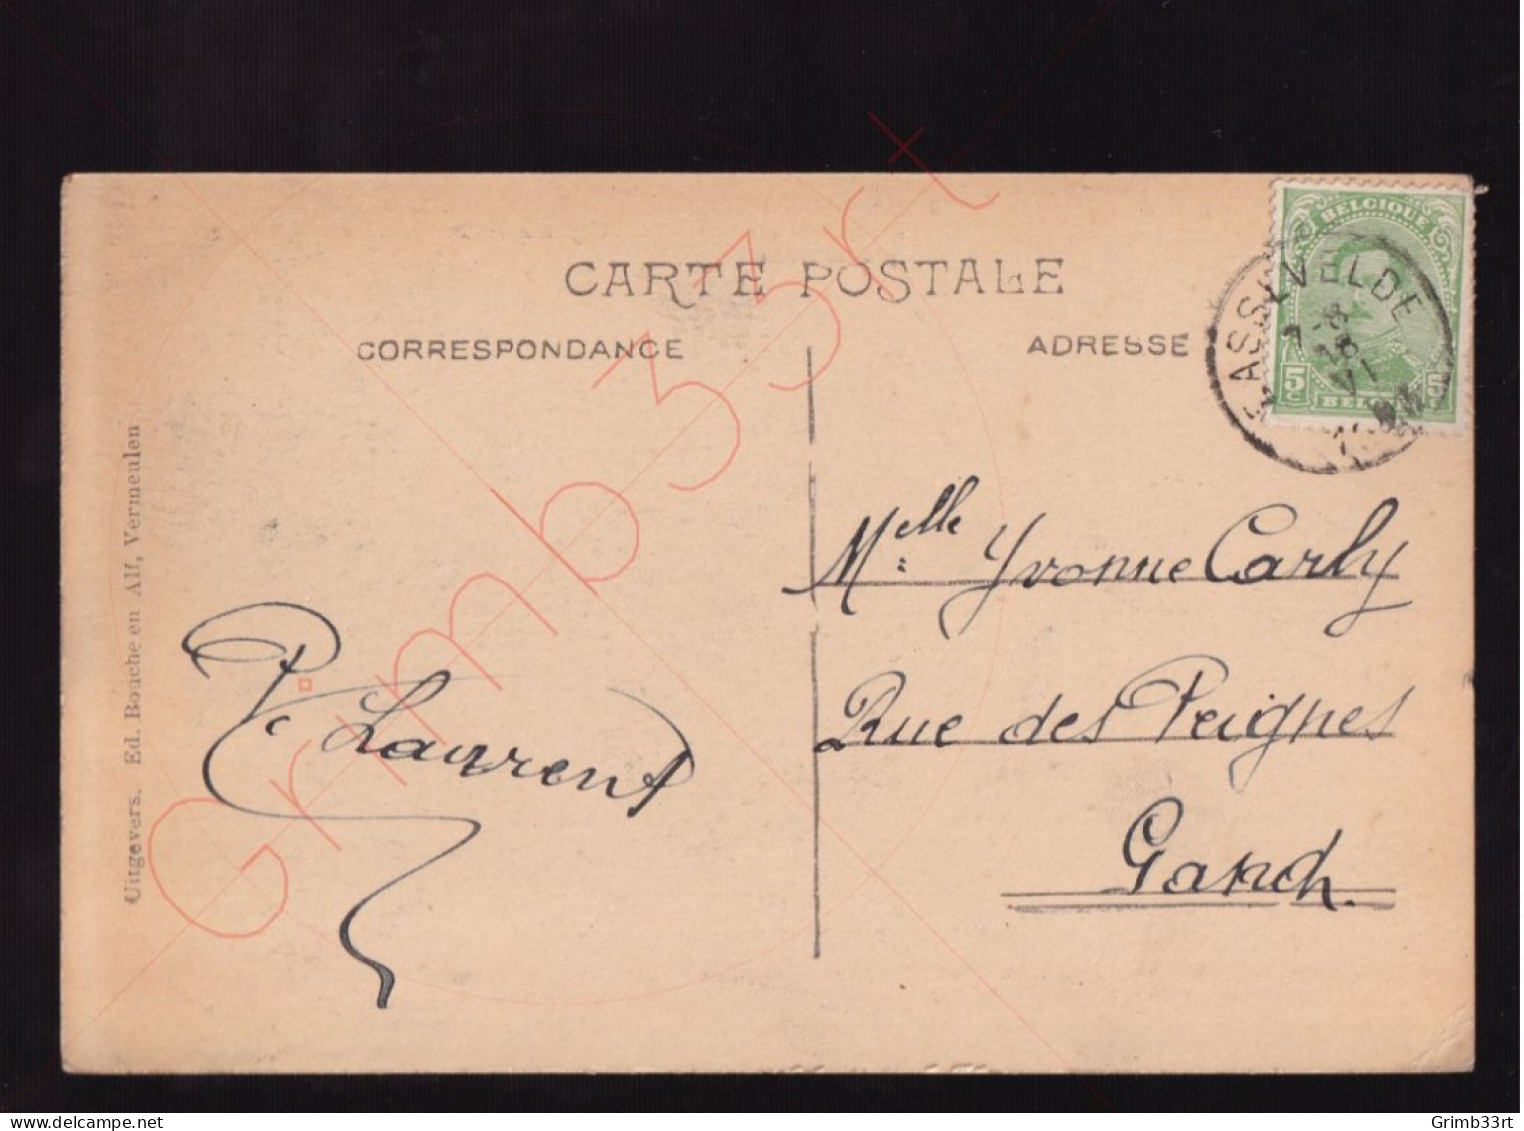 CARTE POSTALE
CORRESPONDANCE
ADRESSE
BELGIQUE
5 C
5 C
ASSEVELDE
7-8
VI
Melle Yvonne Carly
Rue des Peignes
Gand.
P. Laurent
Uitgevers. Ed. Bouche en Alf, Vermeulen
Grimb33rt
Grimb33rt